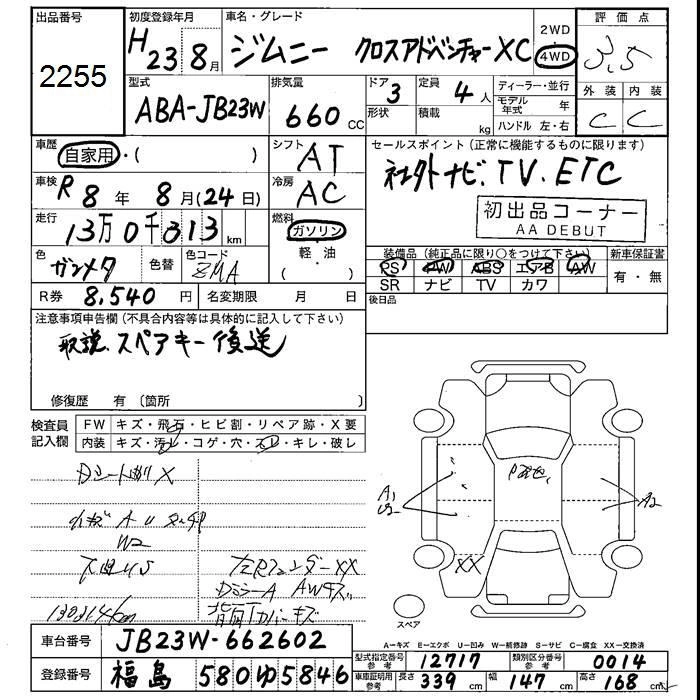 出品番号
2255
初度登録年月
H23 8月
車名・グレード
ジムニー クロスアドベンチャーXC
2WD
・
4WD
評価点
3.5
外装 内装
C C
型式
ABA-JB23W
排気量
660 CC
ドア 3
形状
定員 4人
積載 kg
ディーラー・並行
モデル年式 年
ハンドル 左・右
車歴
自家用・( )
シフト
AT
車検
R8年 8月(24日)
冷房
AC
走行
13万0千313km
燃料
ガソリン
・
軽・油
( )
色
ガンメタ
色替
色コード
ZMA
R券 8,540円
名変期限 月 日
セールスポイント (正常に機能するものに限ります)
社外ナビ、TV、ETC
初出品コーナー
AA DEBUT
装備品 (純正品に限り○をつけて下さい)
PS PW ABS エアB AW
SR ナビ TV カワ
新車保証書
有・無
後日品
注意事項申告欄 (不具合内容等は具体的に記入して下さい)
取説、スペアキー後送
修復歴 有 (箇所 )
検査員
記入欄
FW キズ・飛石・ヒビ割・リペア跡・X要
内装 キズ・汚れ・コゲ・穴・スレ・キレ・破レ
W2
左Rフェンダー XX
DミラーA AWキズ
130314km
背面Tカバーキズ
A1
U2
A2
XX
スペア
A―キズ E―エクボ U―凹み W―補修跡 S―サビ C―腐食 XX―交換済
車台番号 JB23W-662602
登録番号 福島 580 ゆ 5846
型式指定番号 参考 12717
類別区分番号 参考 0014
車庫証明用 参考 長さ 339cm 幅 147cm 高さ 168cm